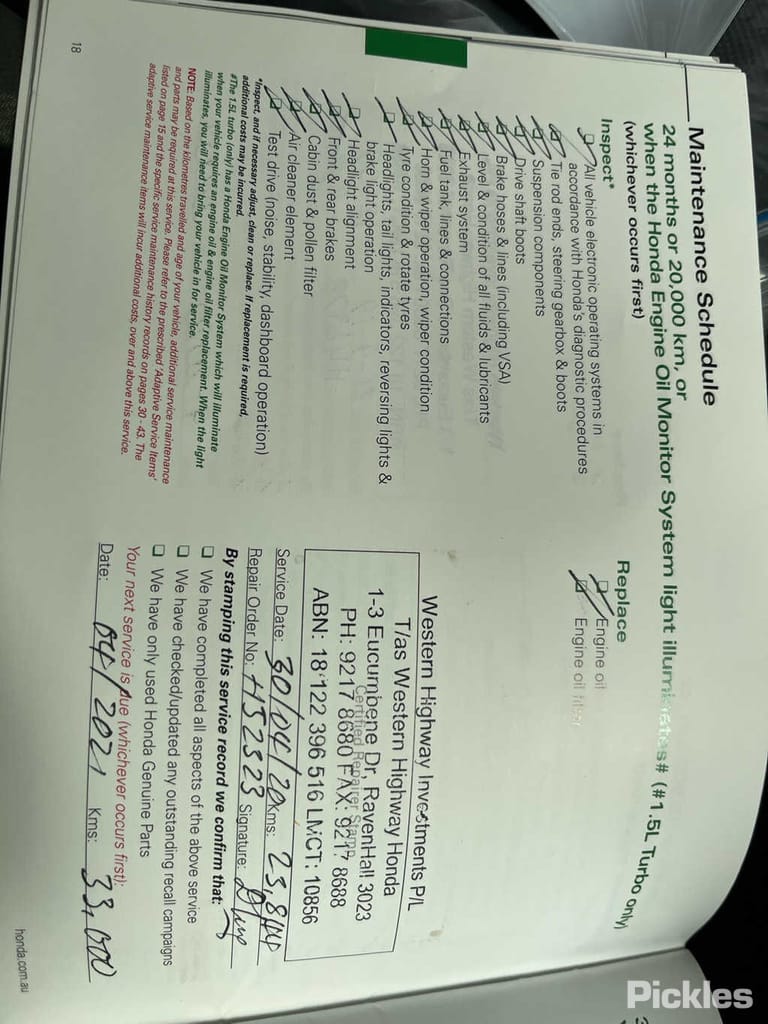 Maintenance Schedule
24 months or 20,000 km, or
when the Honda Engine Oil Monitor System light illuminates# (#1.5L Turbo only)
(whichever occurs first)
Inspect*
All vehicle electronic operating systems in
accordance with Honda's diagnostic procedures
Tie rod ends, steering gearbox & boots
Suspension components
Drive shaft boots
Brake hoses & lines (including VSA)
Level & condition of all fluids & lubricants
Exhaust system
Fuel tank, lines & connections
Horn & wiper operation, wiper condition
Tyre condition & rotate tyres
Headlights, tail lights, indicators, reversing lights &
brake light operation
Headlight alignment
Front & rear brakes
Cabin dust & pollen filter
Air cleaner element
Test drive (noise, stability, dashboard operation)
*Inspect, and if necessary adjust, clean or replace. If replacement is required,
additional costs may be incurred.
#The 1.5L turbo (only) has a Honda Engine Oil Monitor System which will illuminate
when your vehicle requires an engine oil & engine oil filter replacement. When the light
illuminates, you will need to bring your vehicle in for service.
NOTE: Based on the kilometres travelled and age of your vehicle, additional service maintenance
and parts may be required at this service. Please refer to the prescribed 'Adaptive Service Items'
listed on page 15 and the specific service maintenance history records on pages 30 - 43. The
adaptive service maintenance items will incur additional costs, over and above this service.
18
Replace
Engine oil
Engine oil filter
Western Highway Investments P/L
T/as Western Highway Honda
1-3 Eucumbene Dr, RavenHall 3023
Certified Repairer Stamp
PH: 9217 8680 FAX: 9217 8688
ABN: 18 122 396 516 LMCT: 10856
Service Date: 30/04/20 Kms: 23,844
Repair Order No: H52523 Signature:
By stamping this service record we confirm that:
We have completed all aspects of the above service
We have checked/updated any outstanding recall campaigns
We have only used Honda Genuine Parts
Your next service is due (whichever occurs first):
Date: 04/2021 Kms: 33,000
honda.com.au
Pickles